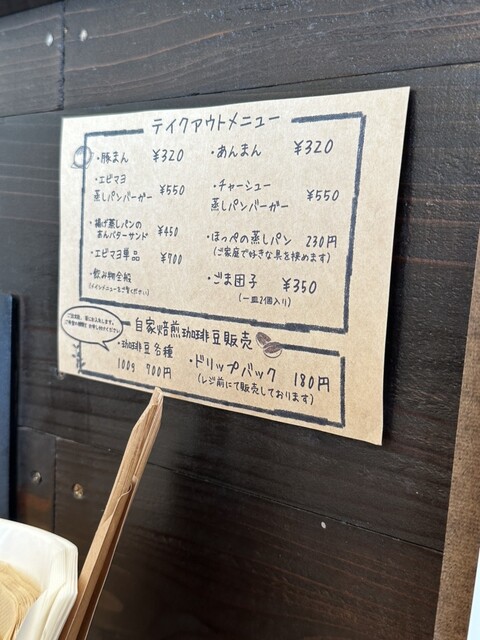 テイクアウトメニュー
・豚まん ¥320
・あんまん ¥320
・エビマヨ
蒸しパンバーガー ¥550
・チャーシュー
蒸しパンバーガー ¥550
・揚げ蒸しパンの
あんバターサンド ¥450
・ほっぺの蒸しパン 230円
(ご家庭で好きな具を挟めます)
・エビマヨ単品 ¥700
・飲み物全般
(メインメニューをご覧ください)
・ごま団子 ¥350
(一皿2個入り)
自家焙煎珈琲豆販売
・珈琲豆各種
100g 700円
・ドリップバック 180円
(レジ前にて販売しております)